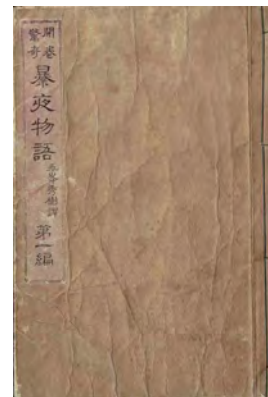 開巻
驚奇
暴夜物語
永峯秀樹譯
第一編